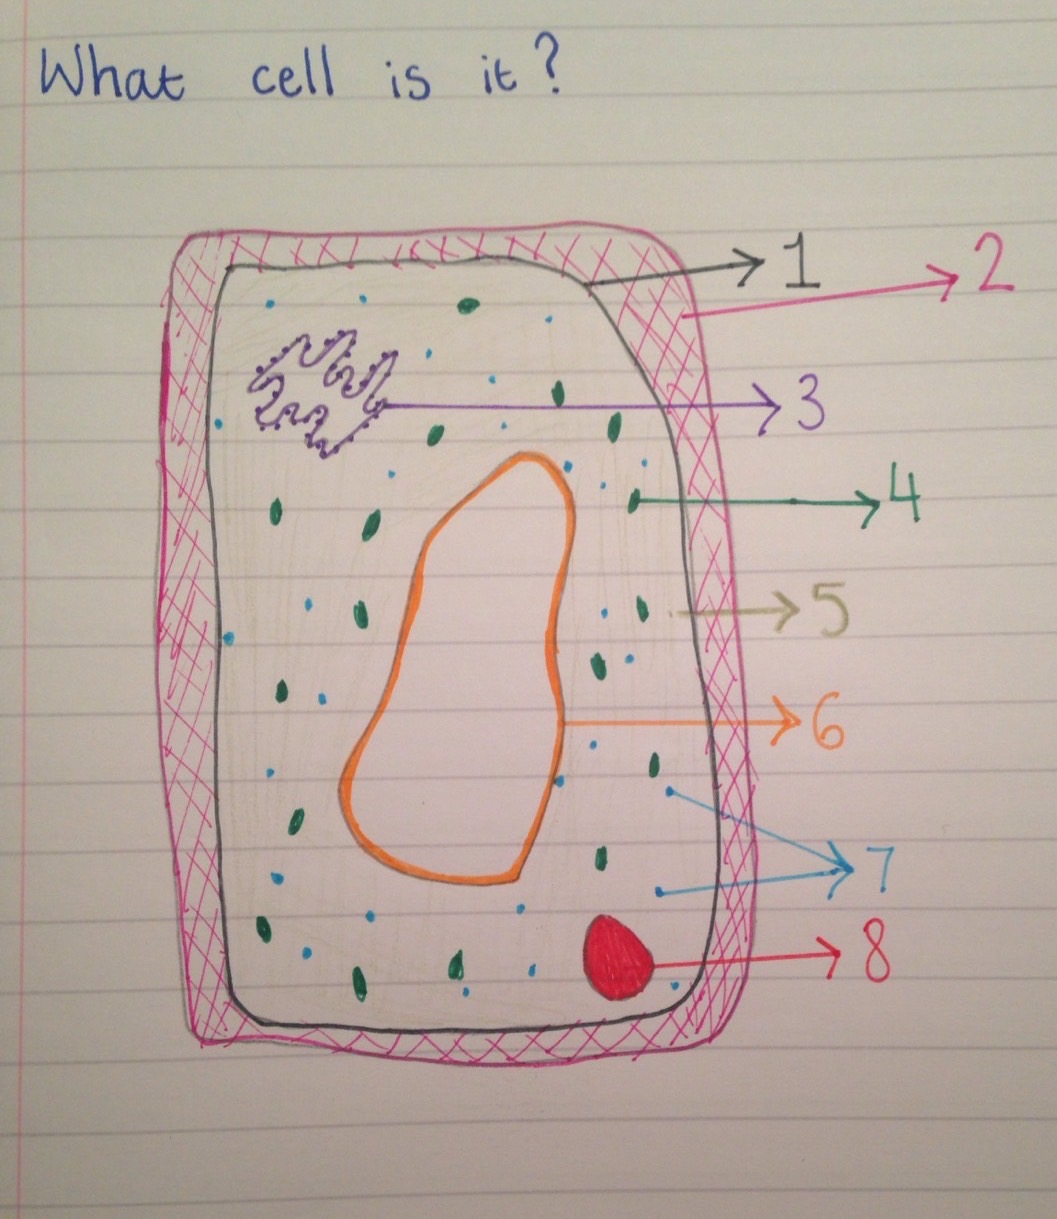 What cell is it?
1
2
3
4
5
6
7
8